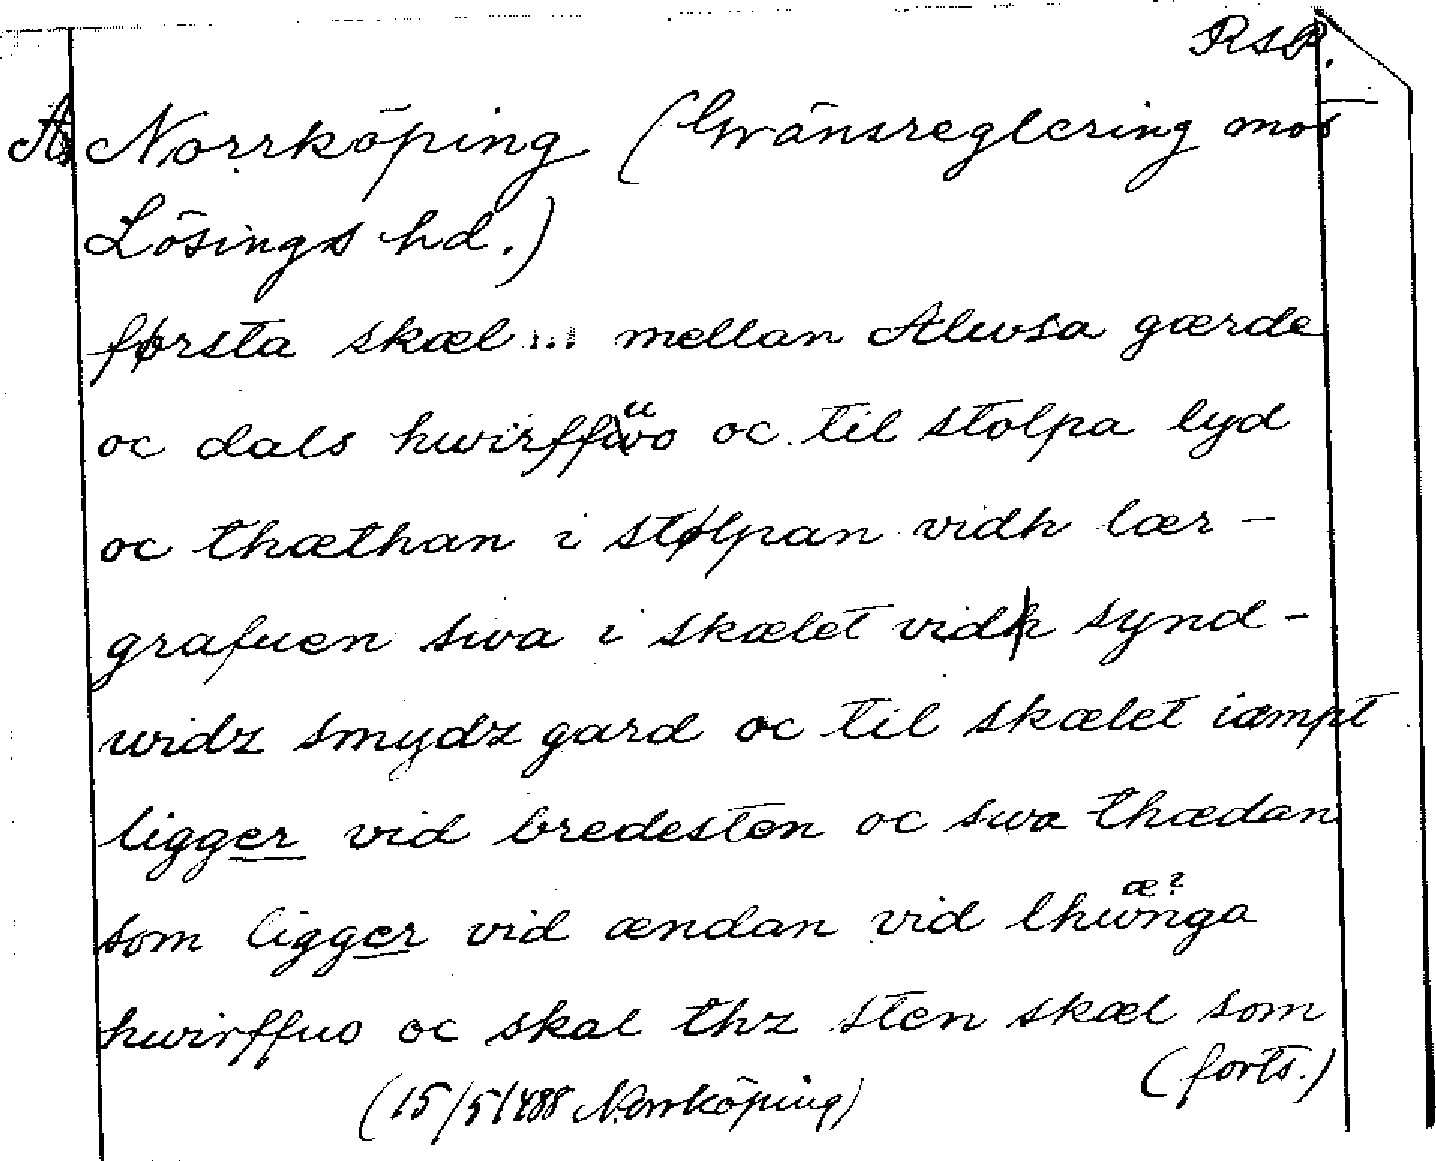 RSP.
A Norrköping (Gränsreglering mot
Lösings hd.)
første skæl ... mellan Alwsa gærde
oc dals hwirffwo oc til stolpa lyd
oc thæthan i stølpan vidh lær-
grafuen swa i skælet vidh synd-
widz smydz gard oc til skælet iæmpt
ligger vid bredesten oc swa thædan
som ligger vid ændan vid lhwnga
æ?
hwirffuo oc skal thz sten skæl som
(forts.)
(15/5 1488 Norrköping)